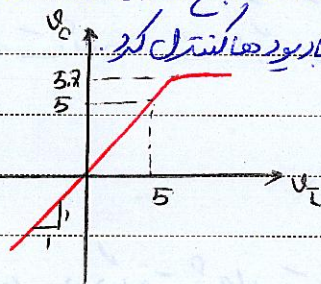 بادیودها کنترل کرد.
v_c
5.7
5
5
v_I
1
1